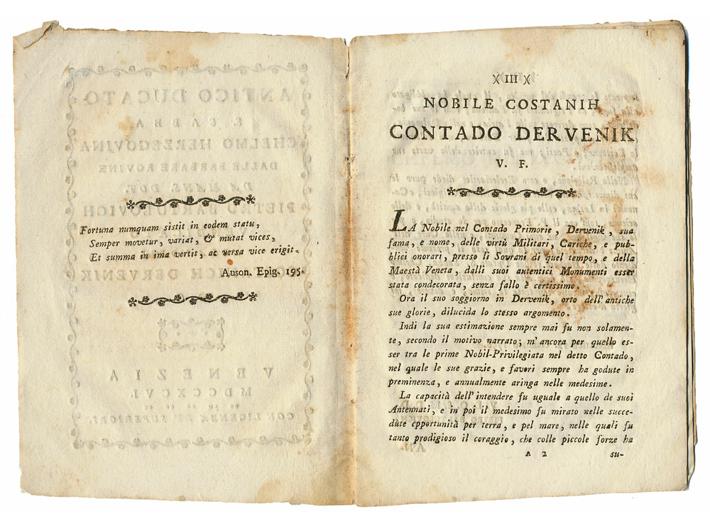 Fortuna numquam sistit in eodem statu,
Semper movetur, variat, & mutat vices,
Et summa in ima vertit, ac versa vice erigit.
Auson. Epig. 195.
)( III )(
NOBILE COSTANIH
CONTADO DERVENIK
V. F.
LA Nobile nel Contado Primorie, Dervenik, sua
fama, e nome, delle virtù Militari, Cariche, e pub-
blici onorari, presso li Sovrani di quel tempo, e della
Maestà Veneta, dalli suoi autentici Monumenti esser
stata condecorata, senza fallo è certissimo.
Ora il suo soggiorno in Dervenik, orto dell'antiche
sue glorie, dilucida lo stesso argomento.
Indi la sua estimazione sempre mai fu non solamen-
te, secondo il motivo narrato; m'ancora per quello es-
ser tra le prime Nobil-Privilegiata nel detto Contado,
nel quale le sue grazie, e favori sempre ha godute in
preminenza, e annualmente aringa nelle medesime.
La capacità dell'intendere fu uguale a quello de suoi
Antennati, e in poi il medesimo fu mirato nelle succe-
dute opportunità per terra, e pel mare, nelle quali fu
tanto prodigioso il coraggio, che colle piccole forze ha
A 2 su-